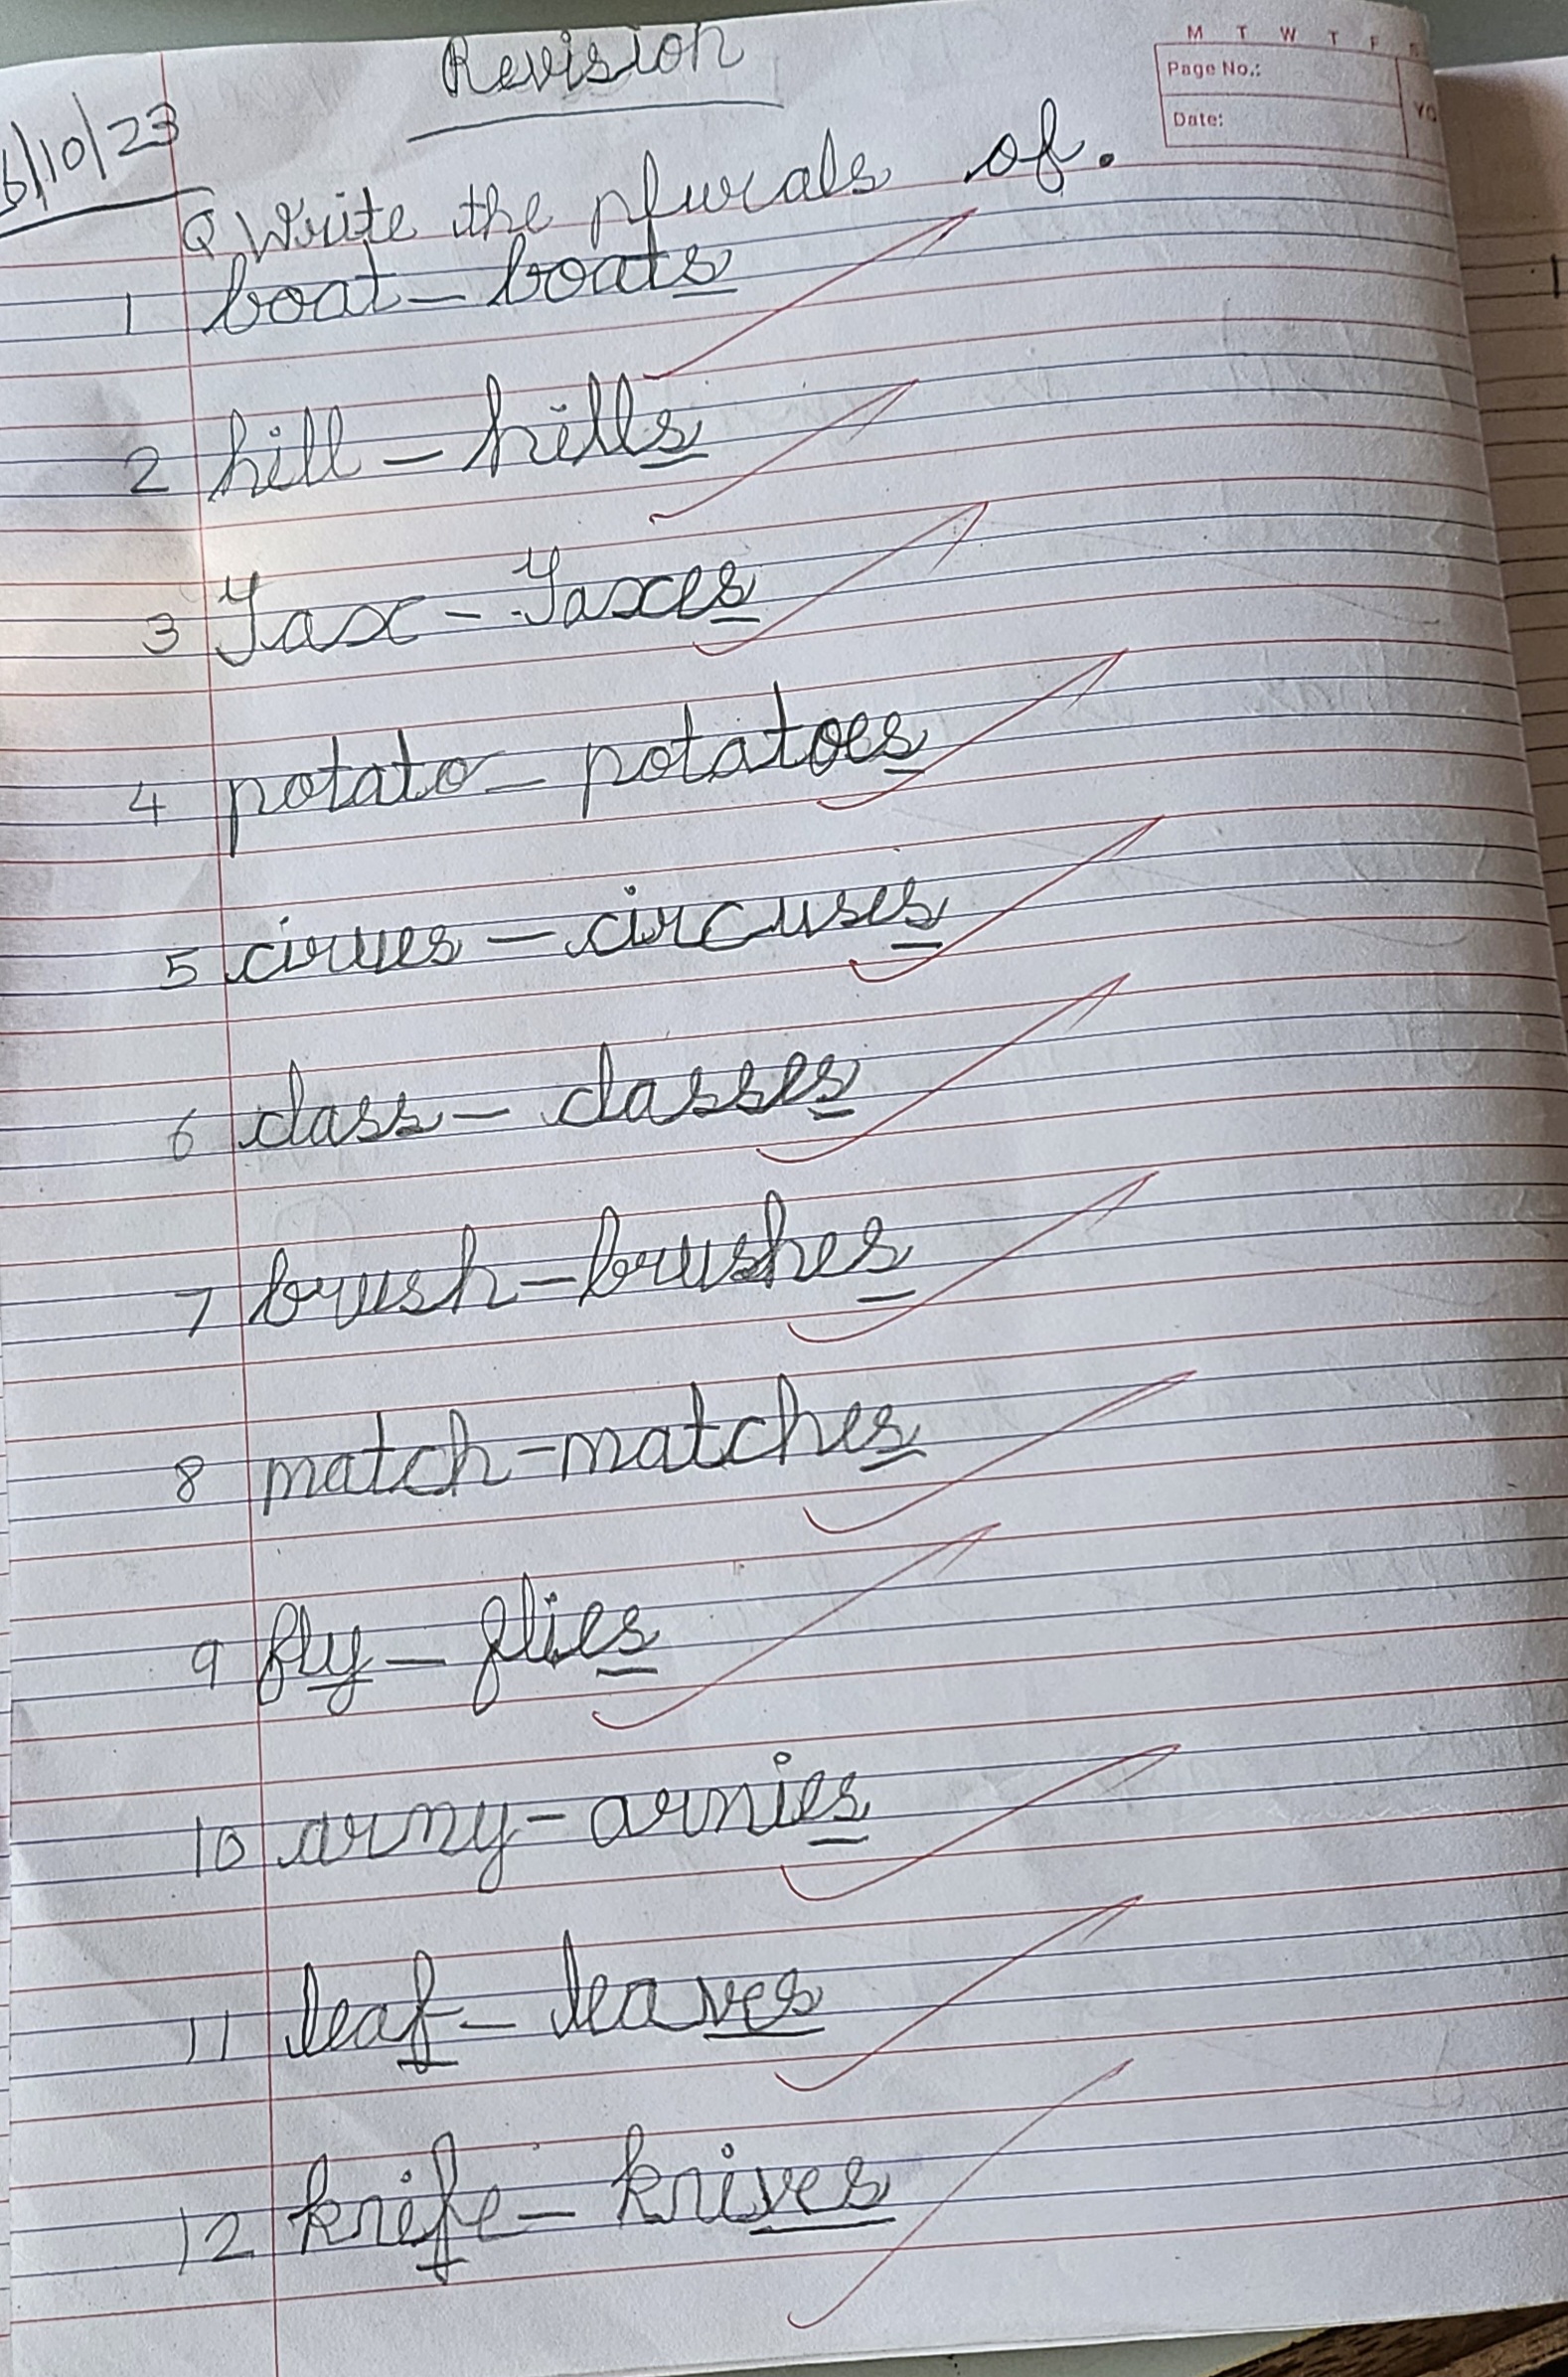 Revision
M T W T F S
Page No.:
Date:
6/10/23
Q Write the plurals of.
1 boat – boats
2 hill – hills
3 Tax – Taxes
4 potato – potatoes
5 cirues – circuses
6 class – classes
7 brush – brushes
8 match – matches
9 fly – flies
10 army – armies
11 leaf – leaves
12 knife – knives